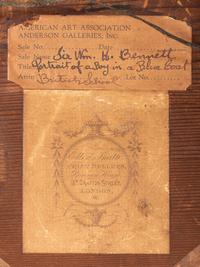 AMERICAN ART ASSOCIATION
ANDERSON GALLERIES, INC.
Sale No. Date
Sale Name Sir Wm. H. Bennett
Title Portrait of a Boy in a Blue Coat
Artist British School Lot No.
Grafton Street,
LONDON.